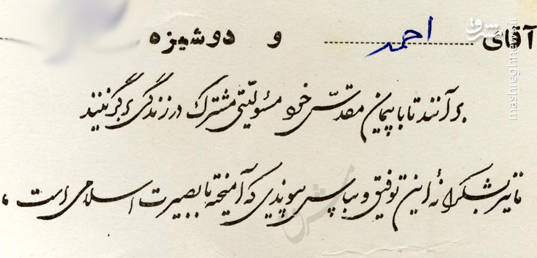 آقای احمد و دوشیزه
بر آنند تا با پیمان مقدّس خود مسئولیّتی مشترک در زندگی برگزینند
ما نیز بشکرانهٔ این توفیق و بپاس پیوندی که آمیخته با بصیرت اسلامی است،
مشرق
mashreghnews.ir